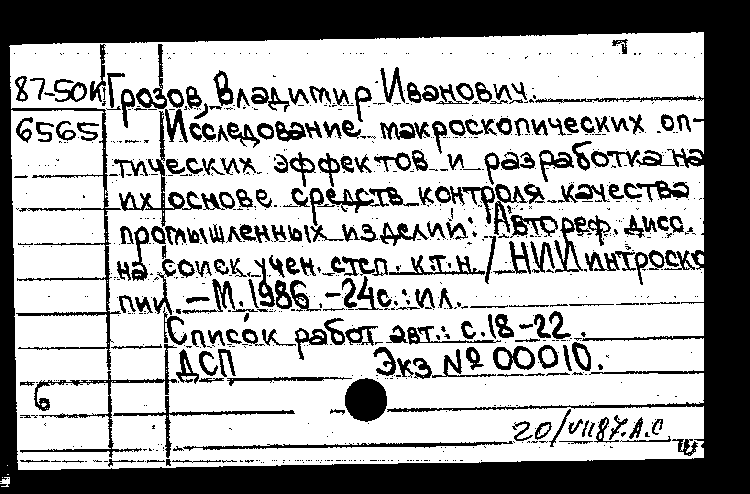 87-50К Грозов, Владимир Иванович.
6565 Исследование макроскопических оп-
тических эффектов и разработка на
их основе средств контроля качества
промышленных изделий: Автореф. дисс.
на соиск учен. степ. к.т.н. / НИИ интроско
пии. — М. 1986. – 24с.: ил.
Список работ авт.: с.18-22.
ДСП Экз № 00010.
6
20/VII87. А.С